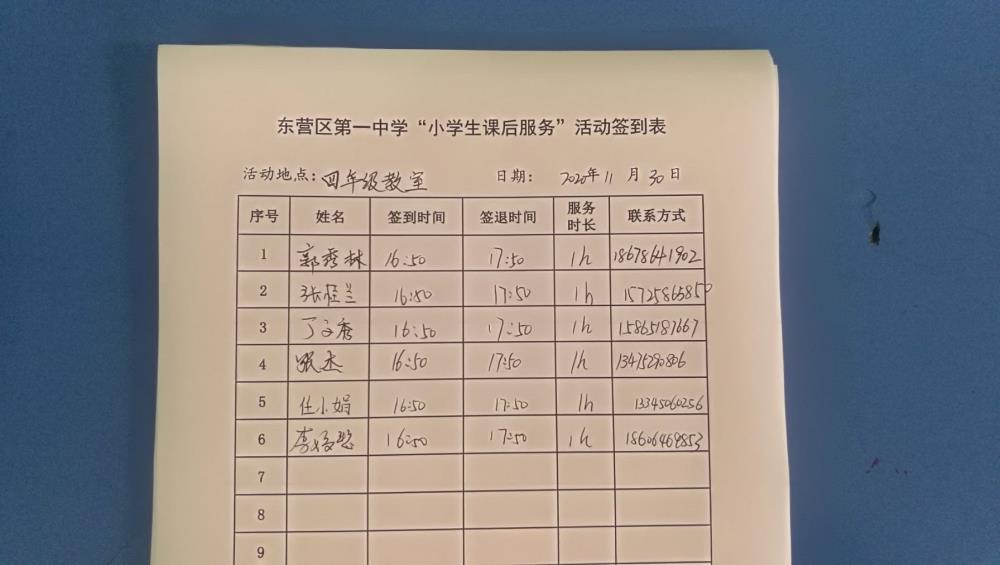 东营区第一中学“小学生课后服务”活动签到表
活动地点：四年级教室 日期： 2020年11月30日
序号 姓名 签到时间 签退时间 服务时长 联系方式
1 郭秀林 16:50 17:50 1h 18678641902
2 张桂兰 16:50 17:50 1h 15725865850
3 丁文秀 16:50 17:50 1h 15865187667
4 16:50 17:50 1h 13475290806
5 任小娟 16:50 17:50 1h 13345060256
6 16:50 17:50 1h 18606469853
7
8
9